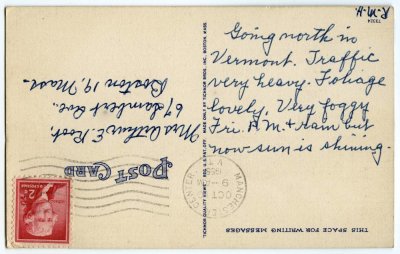 Going north in
Vermont. Traffic
very heavy. Foliage
lovely. Very foggy
Fri. P.M. + rain but
now sun is shining.
THIS SPACE FOR WRITING MESSAGES
TICHNOR QUALITY VIEWS, REG. U.S. PAT. OFF. MADE ONLY BY TICHNOR BROS., INC., BOSTON, MASS.
POST CARD
Mrs. Arthur E. Root,
67 Lambert Ave.,
Boston 19, Mass.
MANCHESTER CENTER
OCT
9
PM
VT.
2¢